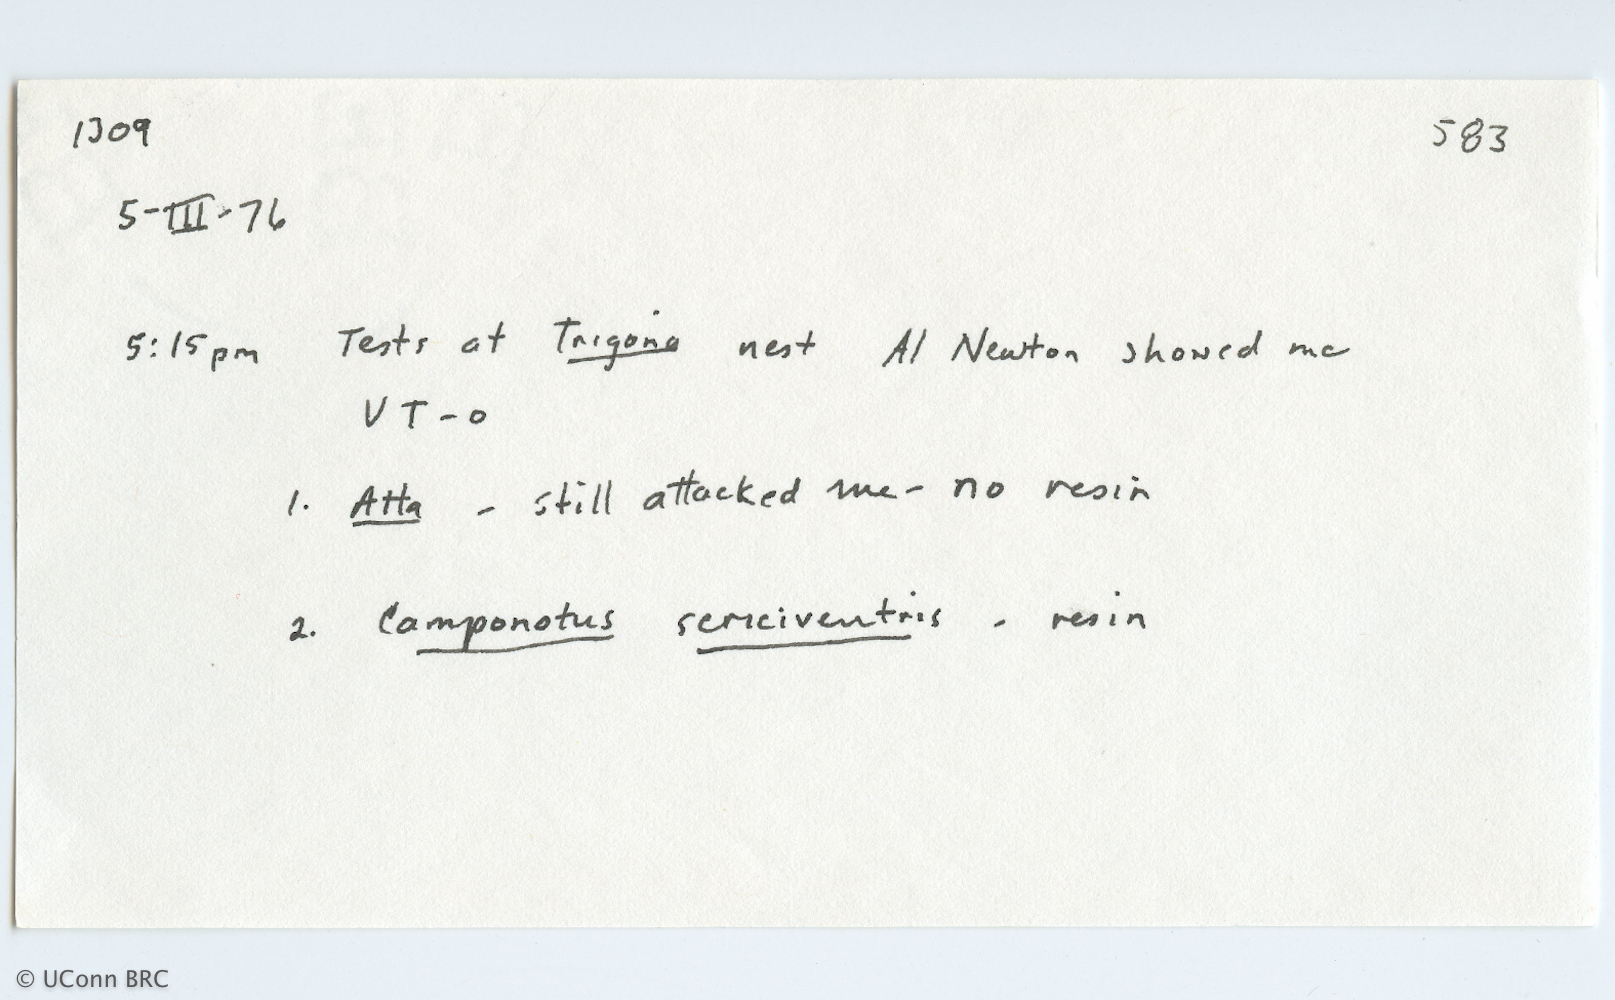 1309
583
5-III-76
5:15pm Tests at Trigona nest Al Newton showed me
VT-0
1. Atta - still attacked me - no resin
2. Camponotus sericiventris - resin
© UConn BRC